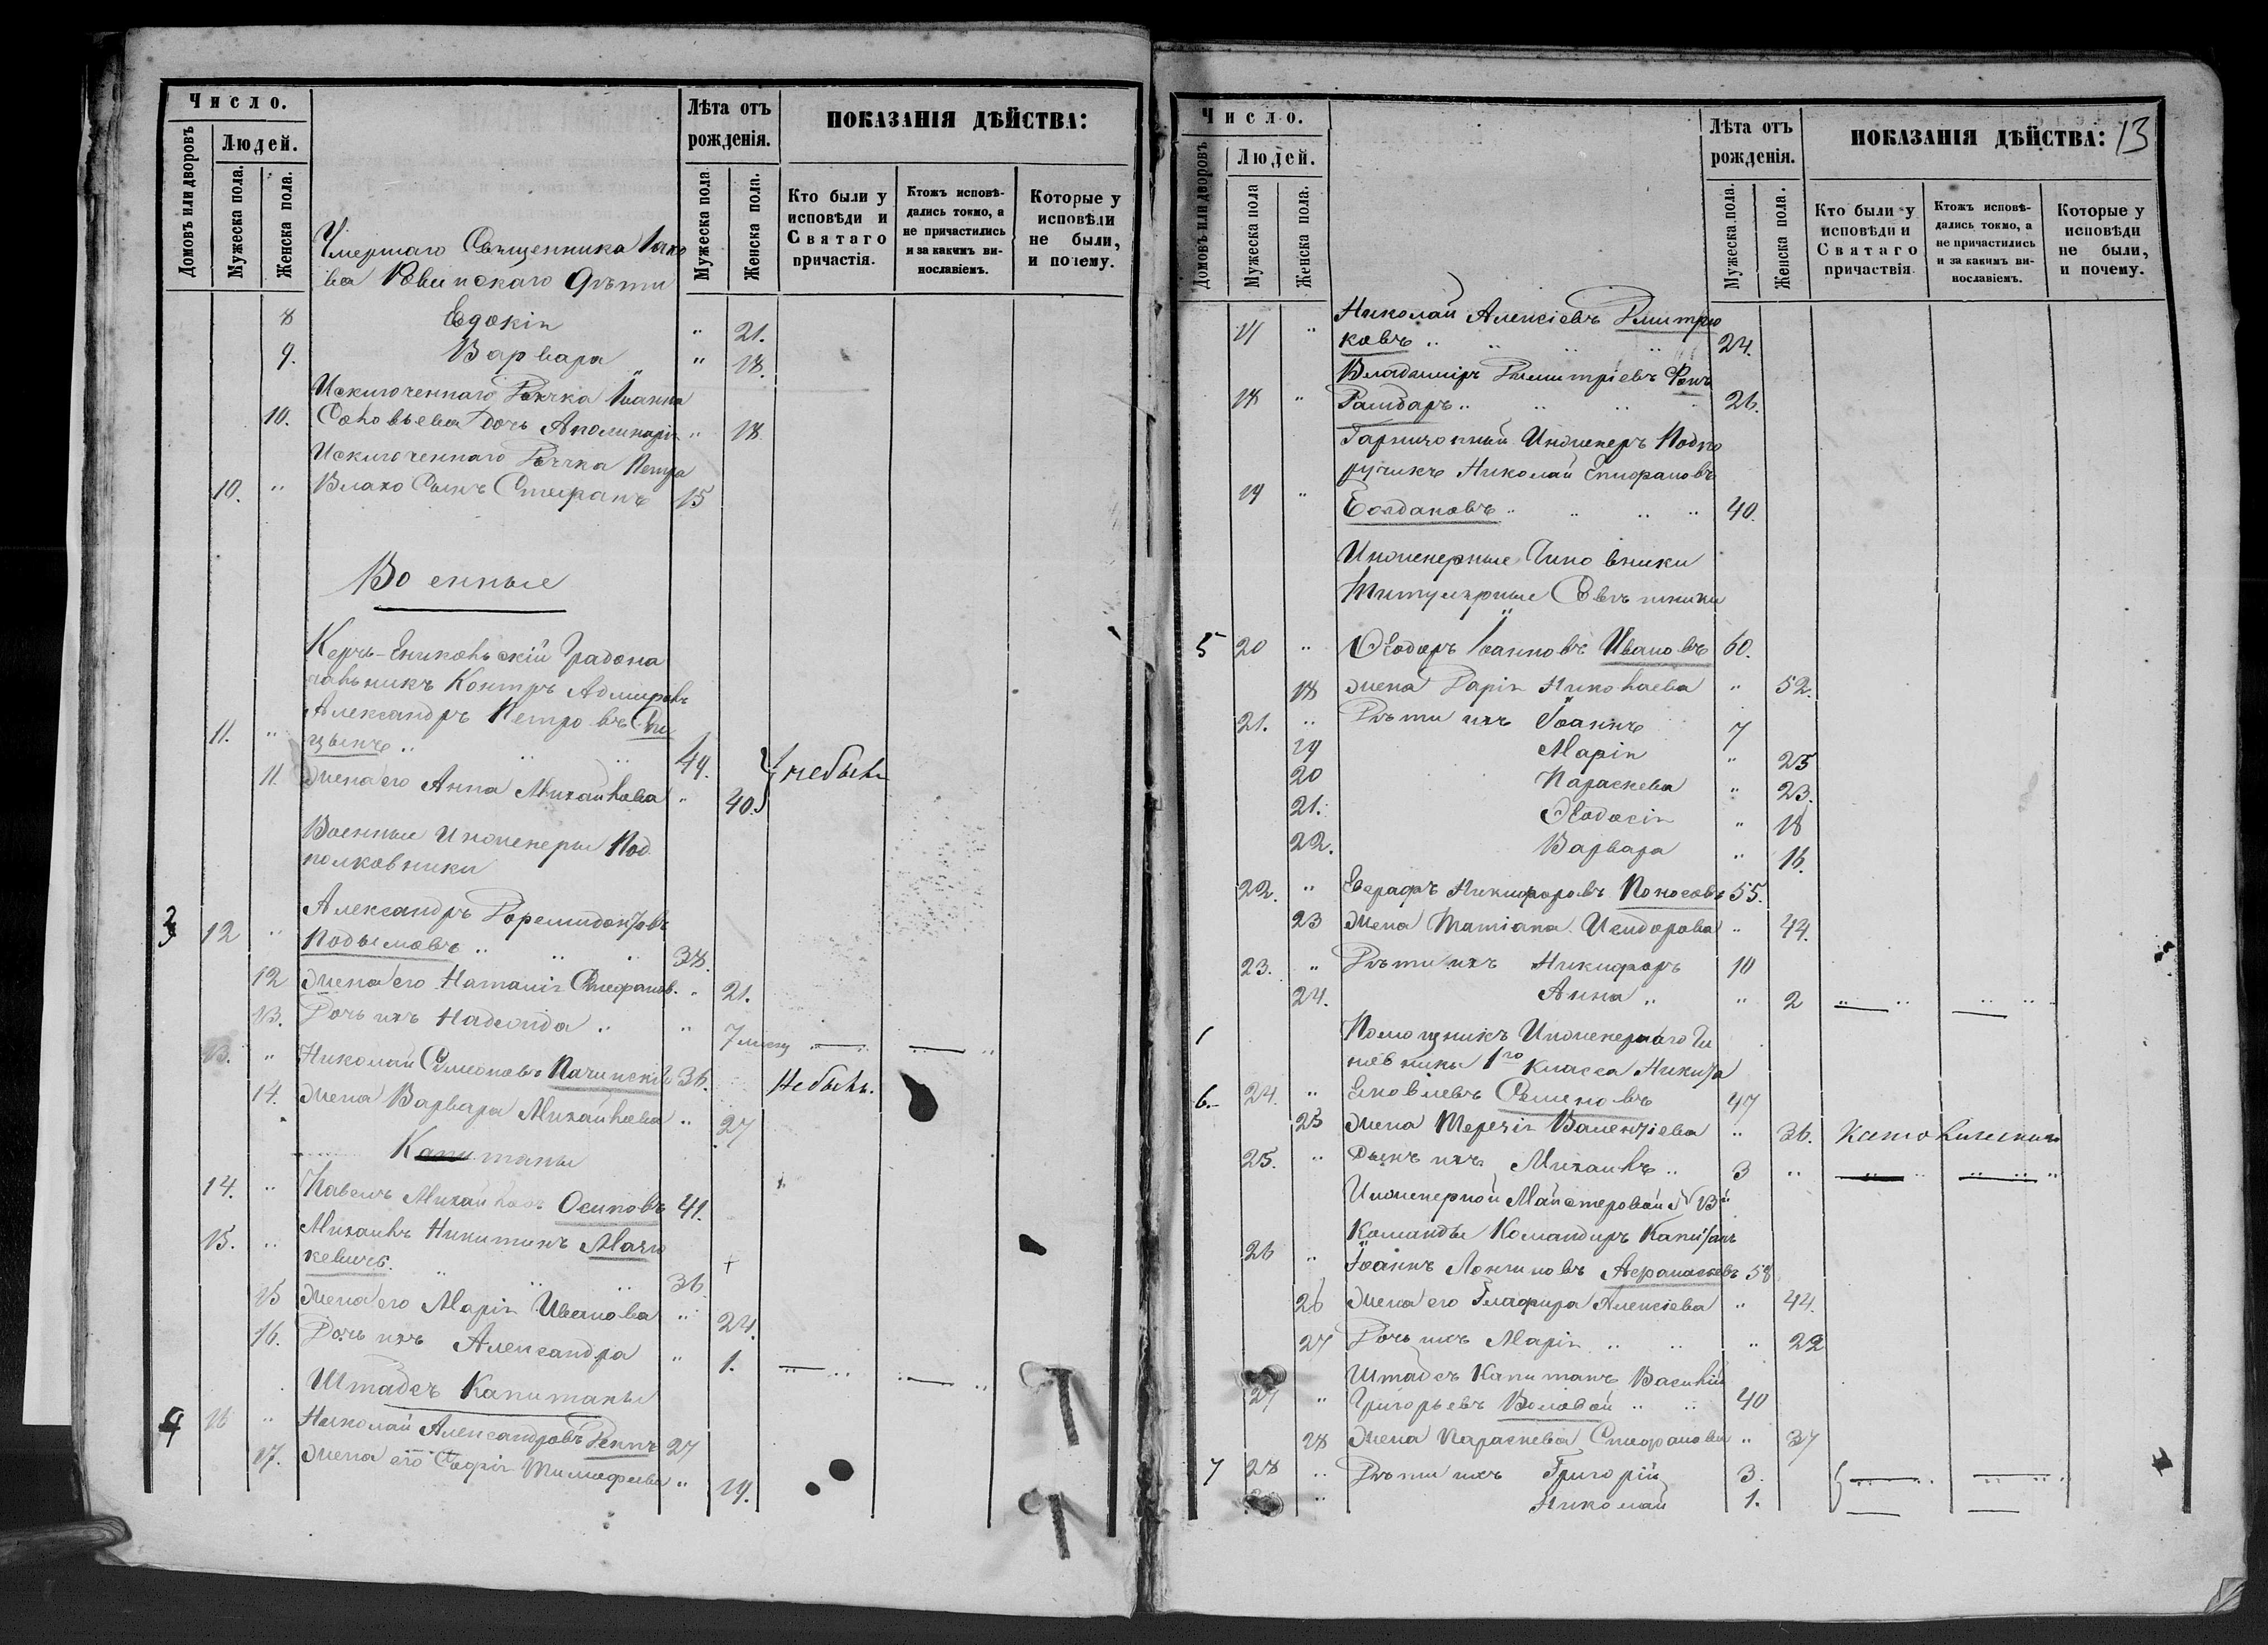 Число.
Домовъ или дворовъ
Людей.
Мужеска пола.
Женска пола.
Лѣта отъ рожденія.
Мужеска пола
Женска пола.
ПОКАЗАНІЯ ДѢЙСТВА:
Кто были у исповѣди и Святаго причастія.
Ктожъ исповѣдались токмо, а не причастились и за какимъ винославіемъ.
Которые у исповѣди не были, и почему.
Умершаго Священника Іако
ва Дѣти
8 Евдокія " 21.
9. Варвара " 18.
Исключеннаго Дьячка Іоанна
10. Соловьева дочь Аполинарія " 18
Исключеннаго Дьячка Петра
10. " Влахо Сынъ Стефанъ 15
Военные
Керчь-Еникольскій Градона
чальникъ Контръ Адмиралъ
Александръ Петровъ Спи
11. " цынъ 49. } небыли
11. Жена его Анна Михайлова " 40.
Военные Инженеры Под
полковники
Александръ
3 12 " Подымовъ 38.
12 Жена его Наталія Стефанов. " 21.
13. Дочь ихъ Надежда " 7 месяц
13. " Николай Симеоновъ 36. Небылъ.
14. Жена Варвара Михайлова " 27
Капитаны
14. " Павелъ Михайловъ Осиповъ 41.
15. " Михаилъ Никитинъ Мацке
кевичъ. 36
15 Жена его Марія Иванова " 24.
16. Дочь ихъ Александра " 1.
Штабсъ Капитаны
4 16 " Николай Александровъ 27
17. Жена его Софія Тимофеева " 19.
Число.
Домовъ или дворовъ
Людей.
Мужеска пола
Женска пола.
Лѣта отъ рожденія.
Мужеска пола.
Женска пола.
ПОКАЗАНІЯ ДѢЙСТВА: 13
Кто были у исповѣди и Святаго причаствія
Ктожъ исповѣдались токмо, а не причастились и за какимъ винославіемъ.
Которые у исповѣди не были, и почему.
Николай Алексіевъ Дмитрю
17 " ковъ 24.
Владиміръ Димитріевъ Фонъ
18 " 26.
Гарнизонный Инженеръ Подпо
ручикъ Николай Епифановъ
19 " Болдановъ 40.
Инженерные Чиновники
Титулярные Совѣтники
5 20 " Ѳеодоръ Іоанновъ Ивановъ 60.
18 жена Дарія Николаева " 52.
21. " Дѣти ихъ Іоаннъ 7
19 Марія " 25
20 Параскева " 23.
21. Ѳеодосія " 18
22. Варвара " 16.
22. " Евграфъ Никифоровъ Поносовъ 55.
23 Жена Татіана Исидорова " 44.
23. " Дѣти ихъ Никифоръ 10
24. Анна " 2
1 Помощникъ Инженернаго Чи
новника 1го класса Никита
6. 24. " Яковлевъ Семеновъ 47
25 Жена Терезія Валентіева " 36. Католическаго
25. " Сынъ ихъ Михаилъ 3
Инженерной Майстеровой № 13й
Команды Командиръ Капитанъ
26 " Іоаннъ Логиновъ Афанасьевъ 58
26 Жена его Глафира Алексіева " 44.
27 Дочь ихъ Марія " 22
Штабсъ Капитанъ Василій
27 " Григорьевъ Воловой 40
28 Жена Параскева Стефанова " 37
7 28 " Дѣти ихъ Григорій 3.
" Николай 1.